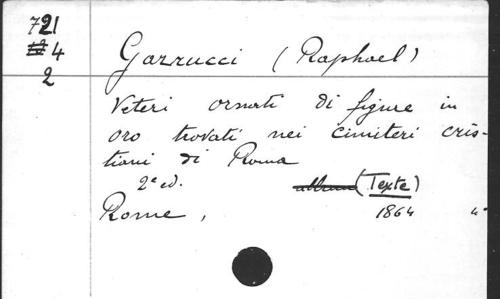 721
4
2
Garrucci (Raphael)
Veteri ornati di figure in
oro trovati nei cimiteri cris-
tiani di Roma
2e ed. album (Texte)
Rome, 1864 4°